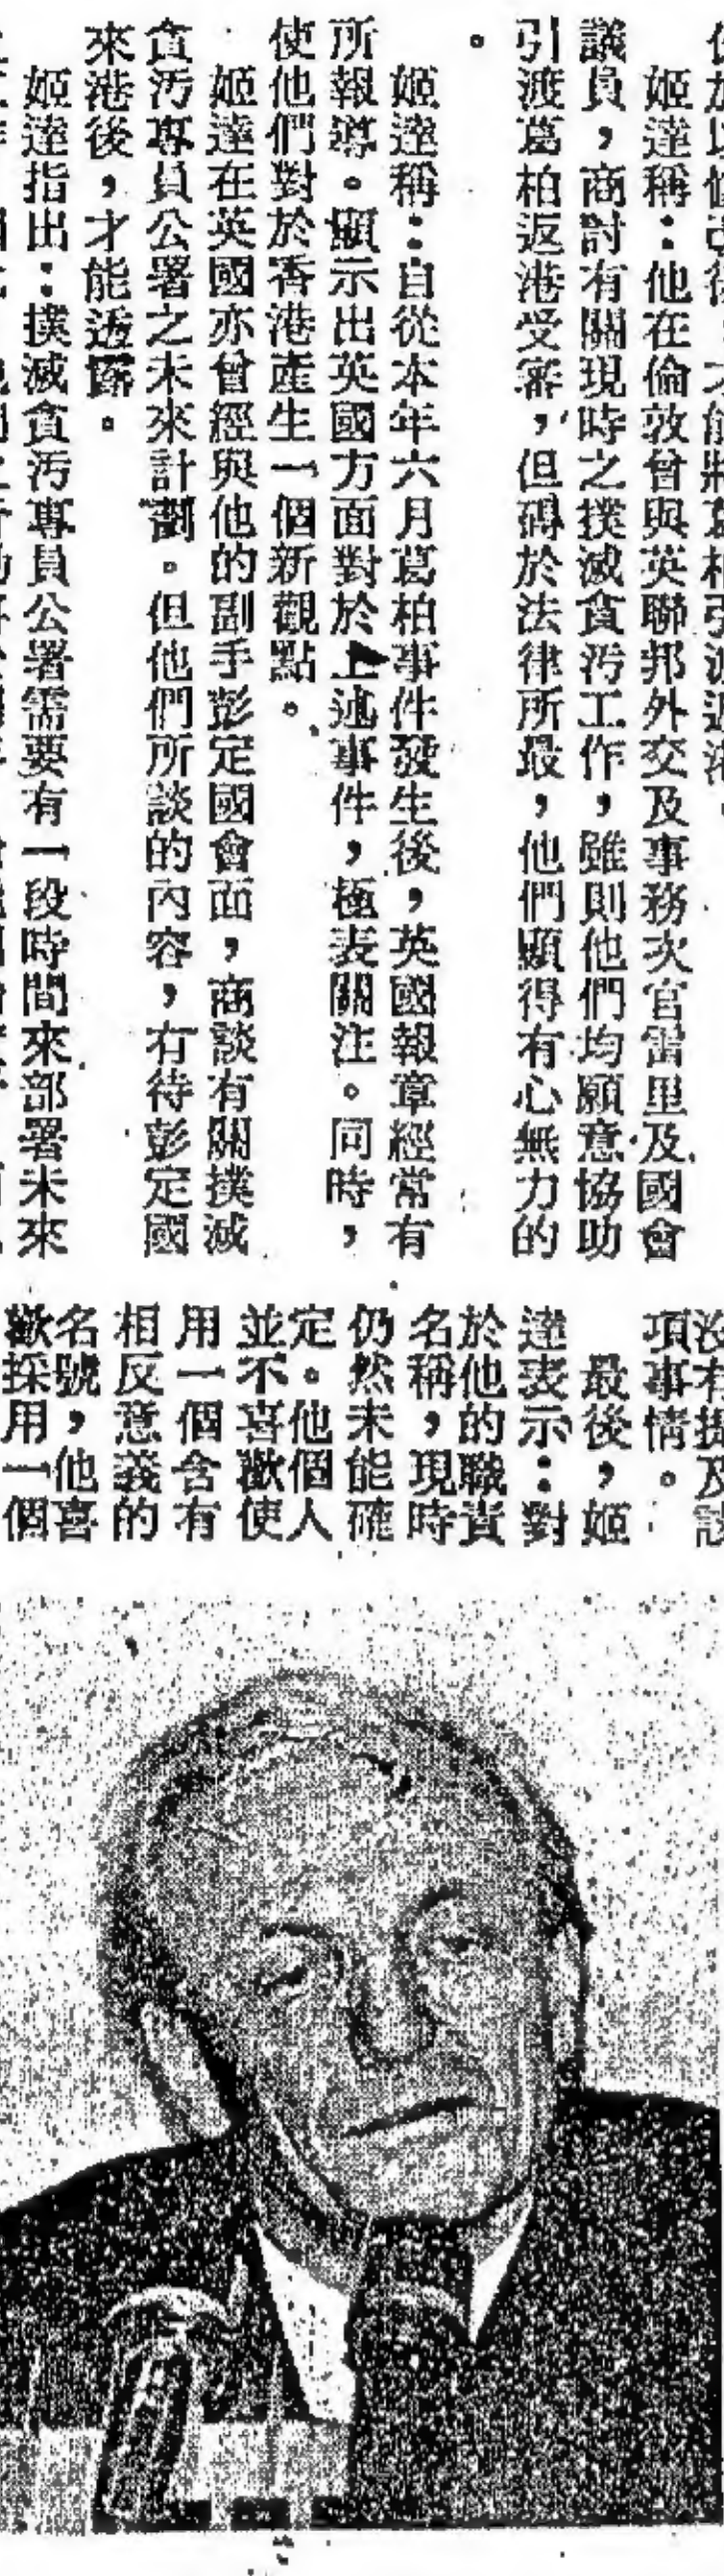 姬達稱：他在倫敦曾與英聯邦外交及事務次官雷里及國會
議員，商討有關現時之撲滅貪污工作，雖則他們均願意協助
引渡葛柏返港受審，但碍於法律所最，他們顯得有心無力的
。
姬達稱：自從本年六月葛柏事件發生後，英國報章經常有
所報導。顯示出英國方面對於上述事件，極表關注。同時，
使他們對於香港產生一個新觀點。
姬達在英國亦曾經與他的副手彭定國會面，商談有關撲滅
貪污專員公署之未來計劃。但他們所談的內容，有待彭定國
來港後，才能透露。
姬達指出：撲滅貪污專員公署需要有一段時間來部署未來
沒有提及該
項事情。
最後，姬
達表示：對
於他的職責
名稱，現時
仍然未能確
定。他個人
並不喜歡使
用一個含有
相反意義的
名號，他喜
歡採用一個